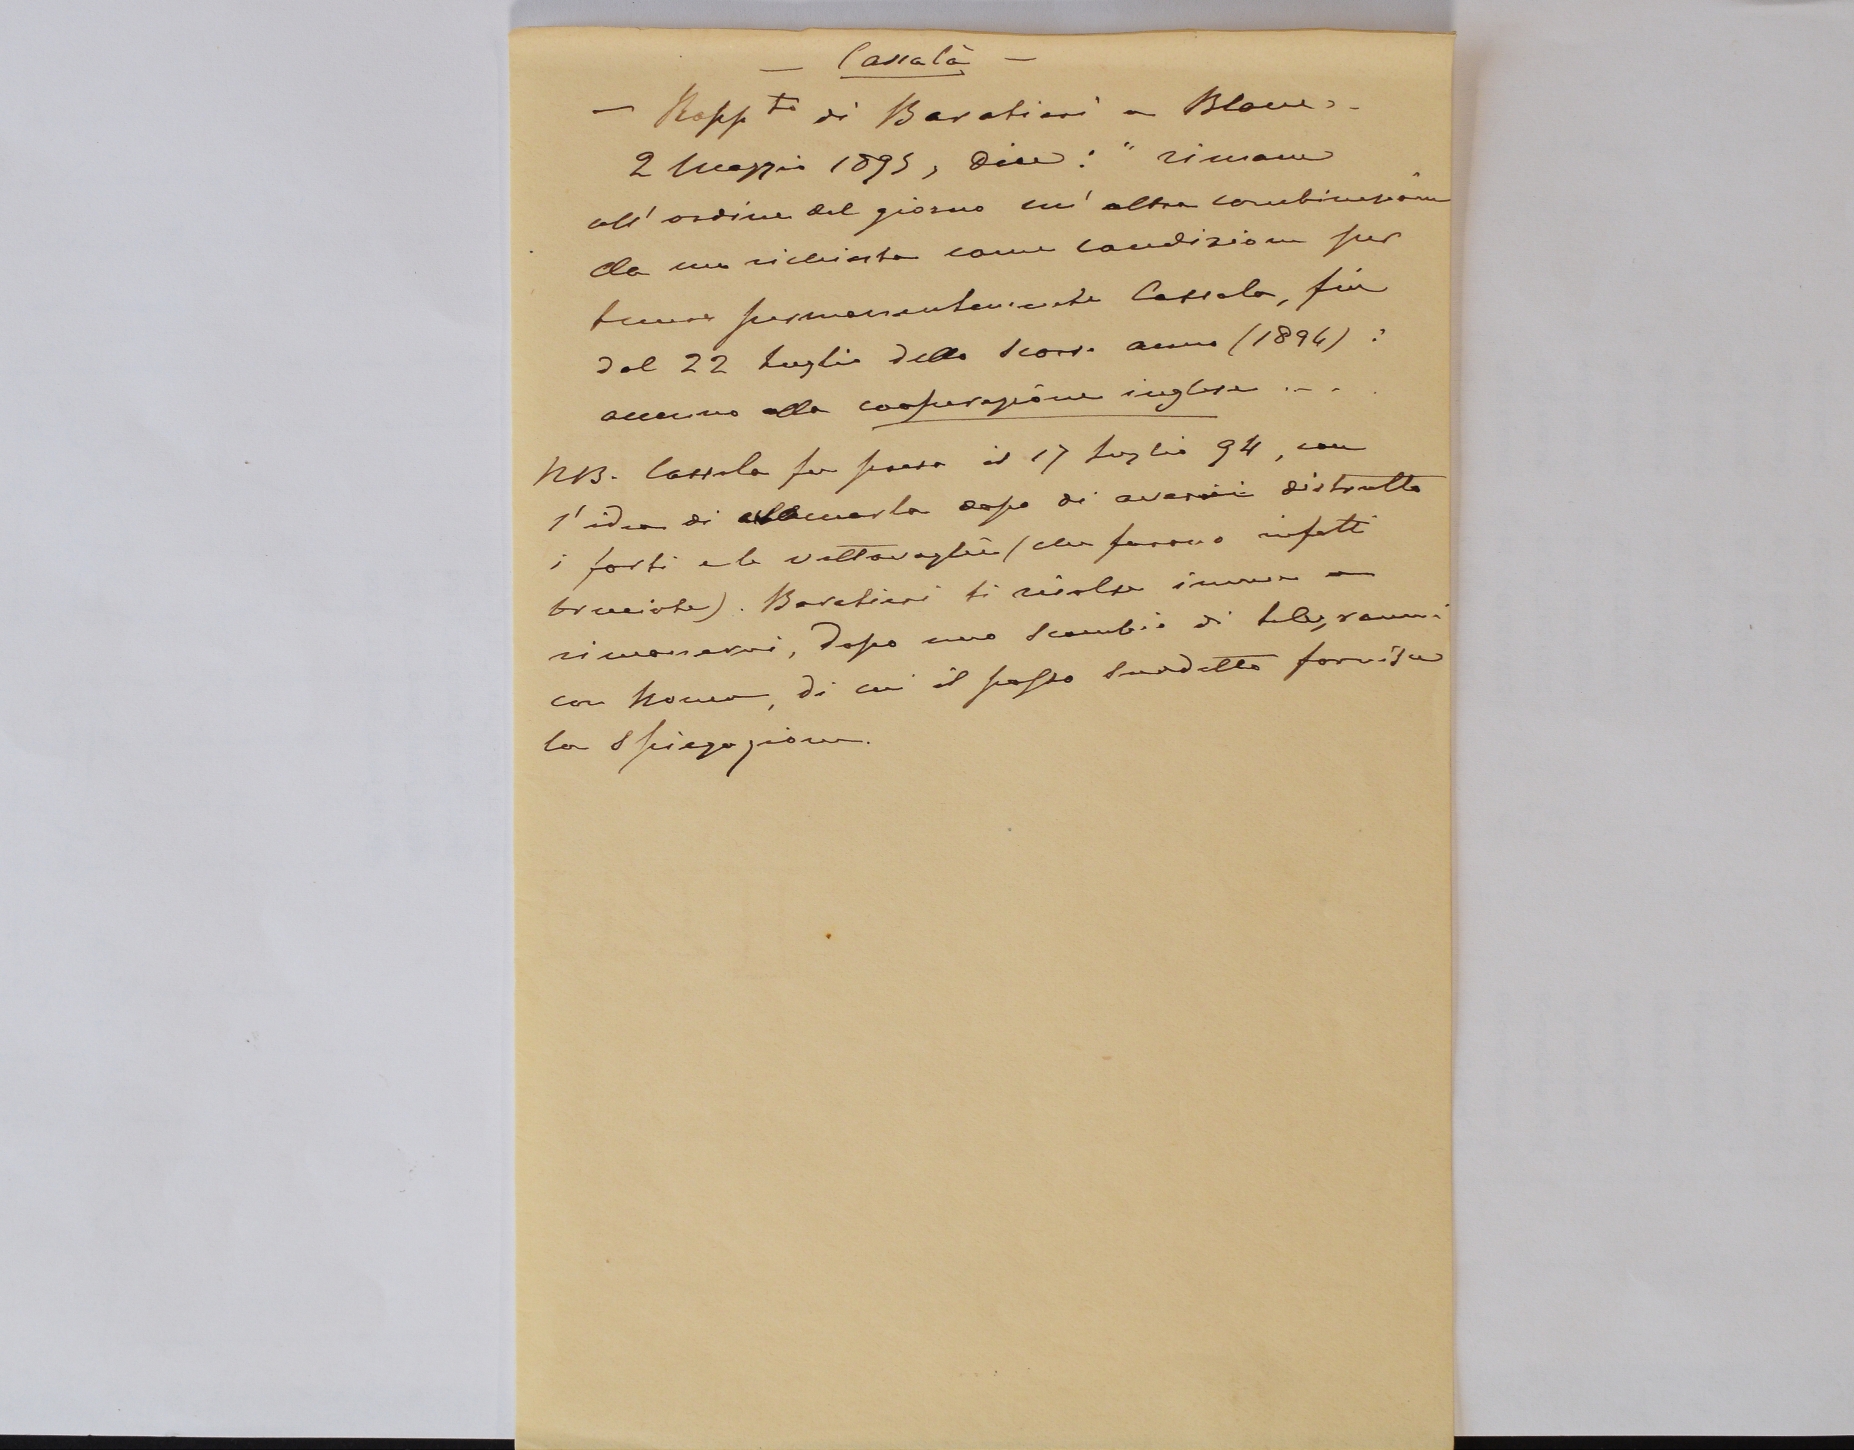 — Cassala —
— Rapp.to di Baratieri a Blanc -
2 Maggio 1895, dice: " rimane
all' ordine del giorno un' altra combinazione
da me richiesta come condizione per
tenere permanentemente Cassala, fin
dal 22 luglio dello scorso anno (1894):
accenno alla cooperazione inglese ...
NB. Cassala fu presa il 17 luglio 94, con
l'idea di dopo di avervi distrutto
i forti e le vettovaglie (che furono infatti
bruciate). Baratieri si risolse invece a
rimanervi, dopo uno scambio di telegrammi
con Roma, di cui il passo suddetto fornisce
la spiegazione.